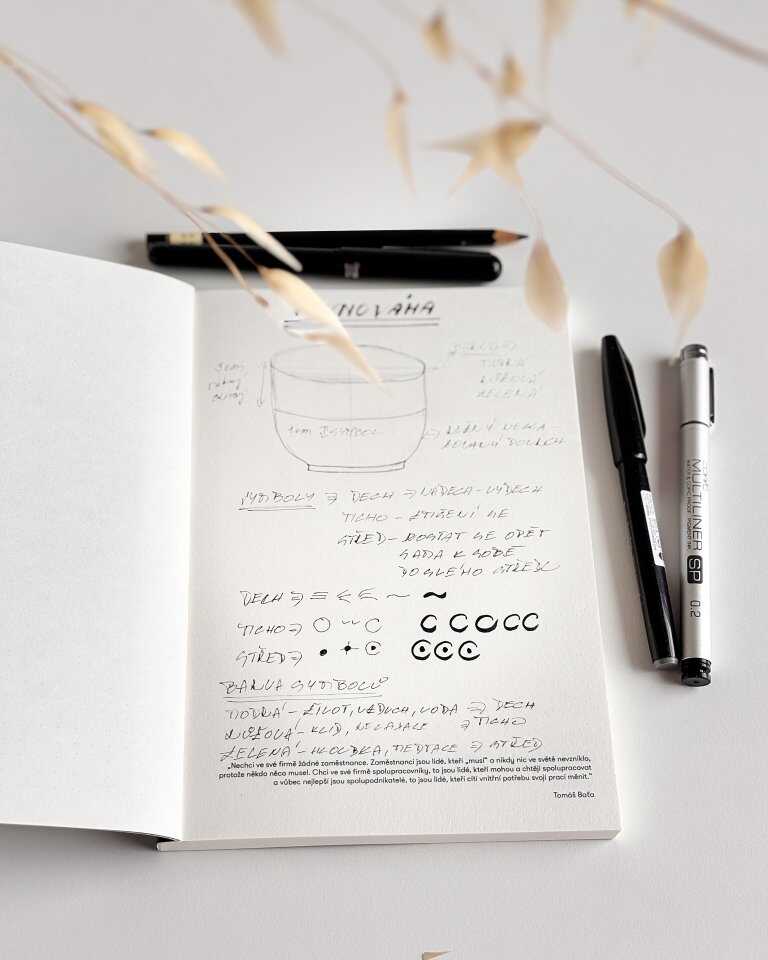 1cm SYMBOL
SYMBOLY → DECH → NÁDECH - VÝDECH
TICHO - ZTIŠENÍ SE
STŘED - DOSTAT SE OPĚT
SÁM K SOBĚ
DO SVÉHO STŘEDU
DECH →
TICHO →
STŘED →
BARVA SYMBOLŮ
MODRÁ - ŽIVOT, VZDUCH, VODA → DECH
RŮŽOVÁ - KLID, RELAXACE → TICHO
ZELENÁ - HLOUBKA, MEDITACE → STŘED
„Nechci ve své firmě žádné zaměstnance. Zaměstnanci jsou lidé, kteří „musí“ a nikdy nic ve světě nevzniklo,
protože někdo něco musel. Chci ve své firmě spolupracovníky, to jsou lidé, kteří mohou a chtějí spolupracovat
a vůbec nejlepší jsou spolupodnikatelé, to jsou lidé, kteří cítí vnitřní potřebu svojí prací měnit.“
Tomáš Baťa
MULTILINER SP 0.2